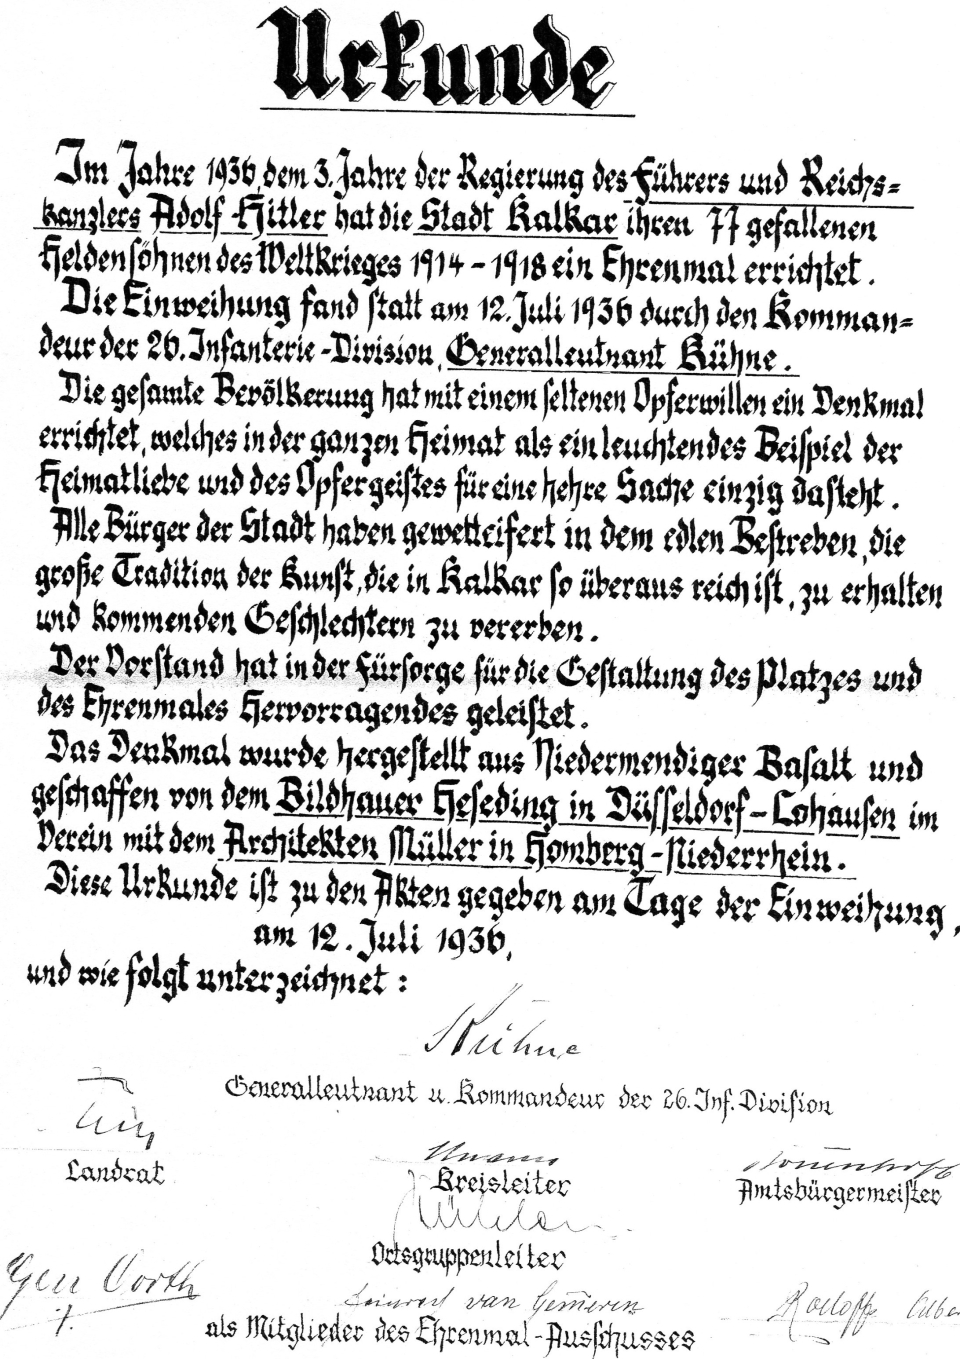 Urkunde
Im Jahre 1936, dem 3. Jahre der Regierung des Führers und Reichs=
kanzlers Adolf Hitler hat die Stadt Kalkar ihren 77 gefallenen
Heldensöhnen des Weltkrieges 1914 - 1918 ein Ehrenmal errichtet.
Die Einweihung fand statt am 12. Juli 1936 durch den Komman=
deur der 26. Infanterie-Division, Generalleutnant Kühne.
Die gesamte Bevölkerung hat mit einem seltenen Opferwillen ein Denkmal
errichtet, welches in der ganzen Heimat als ein leuchtendes Beispiel der
Heimatliebe und des Opfergeistes für eine hehre Sache einzig dasteht.
Alle Bürger der Stadt haben gewetteifert in dem edlen Bestreben, die
große Tradition der Kunst, die in Kalkar so überaus reich ist, zu erhalten
und kommenden Geschlechtern zu vererben.
Der Vorstand hat in der Fürsorge für die Gestaltung des Platzes und
des Ehrenmales Hervorragendes geleistet.
Das Denkmal wurde hergestellt aus Niedermendiger Basalt und
geschaffen von dem Bildhauer Heseding in Düsseldorf-Lohausen im
Verein mit dem Architekten Müller in Homberg-Niederrhein.
Diese Urkunde ist zu den Akten gegeben am Tage der Einweihung,
am 12. Juli 1936,
und wie folgt unterzeichnet:
Kühne
Generalleutnant u. Kommandeur der 26. Inf. Division
Landrat
Kreisleiter
Amtsbürgermeister
Ortsgruppenleiter
Heinrich van Gemmeren
als Mitglieder des Ehrenmal-Ausschusses